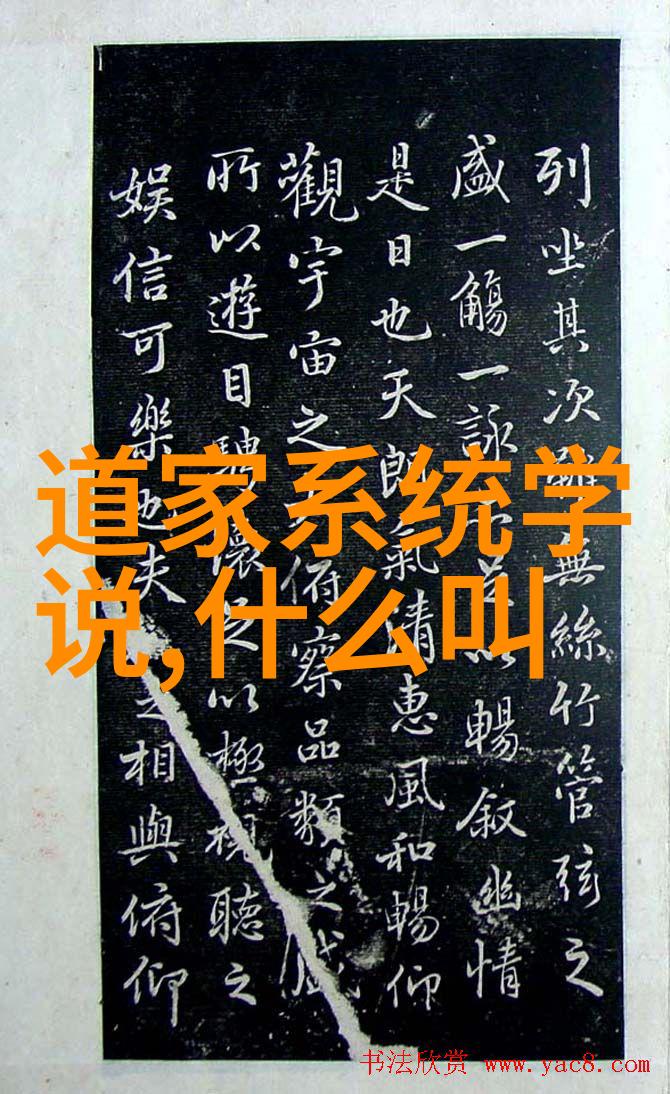 列坐其次雖無絲竹管弦之
盛一觴一詠亦足以暢叙幽情
是日也天朗氣清惠風和暢仰
觀宇宙之俯察品類之盛
所以遊目騁懷足以極視聽之
娛信可樂也夫之相與俯仰
道家系统学
说,什么叫
书法欣赏 www.yac8.com